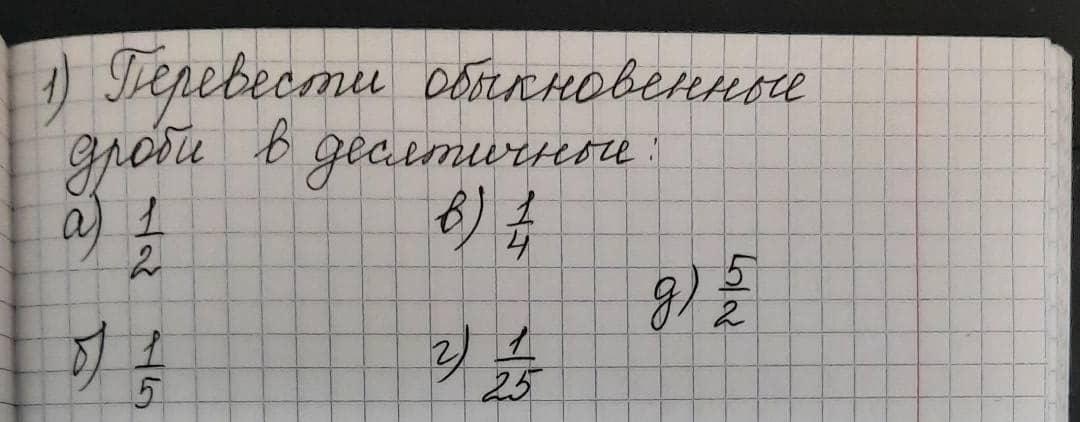 1) Перевести обыкновенные
дроби в десятичные:
а) 1/2 в) 1/4
д) 5/2
б) 1/5 г) 1/25